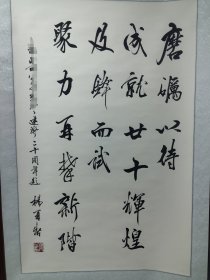 磨礪以待
成就廿十輝煌
及鋒而試
聚力再攀新階
建院二十周年題